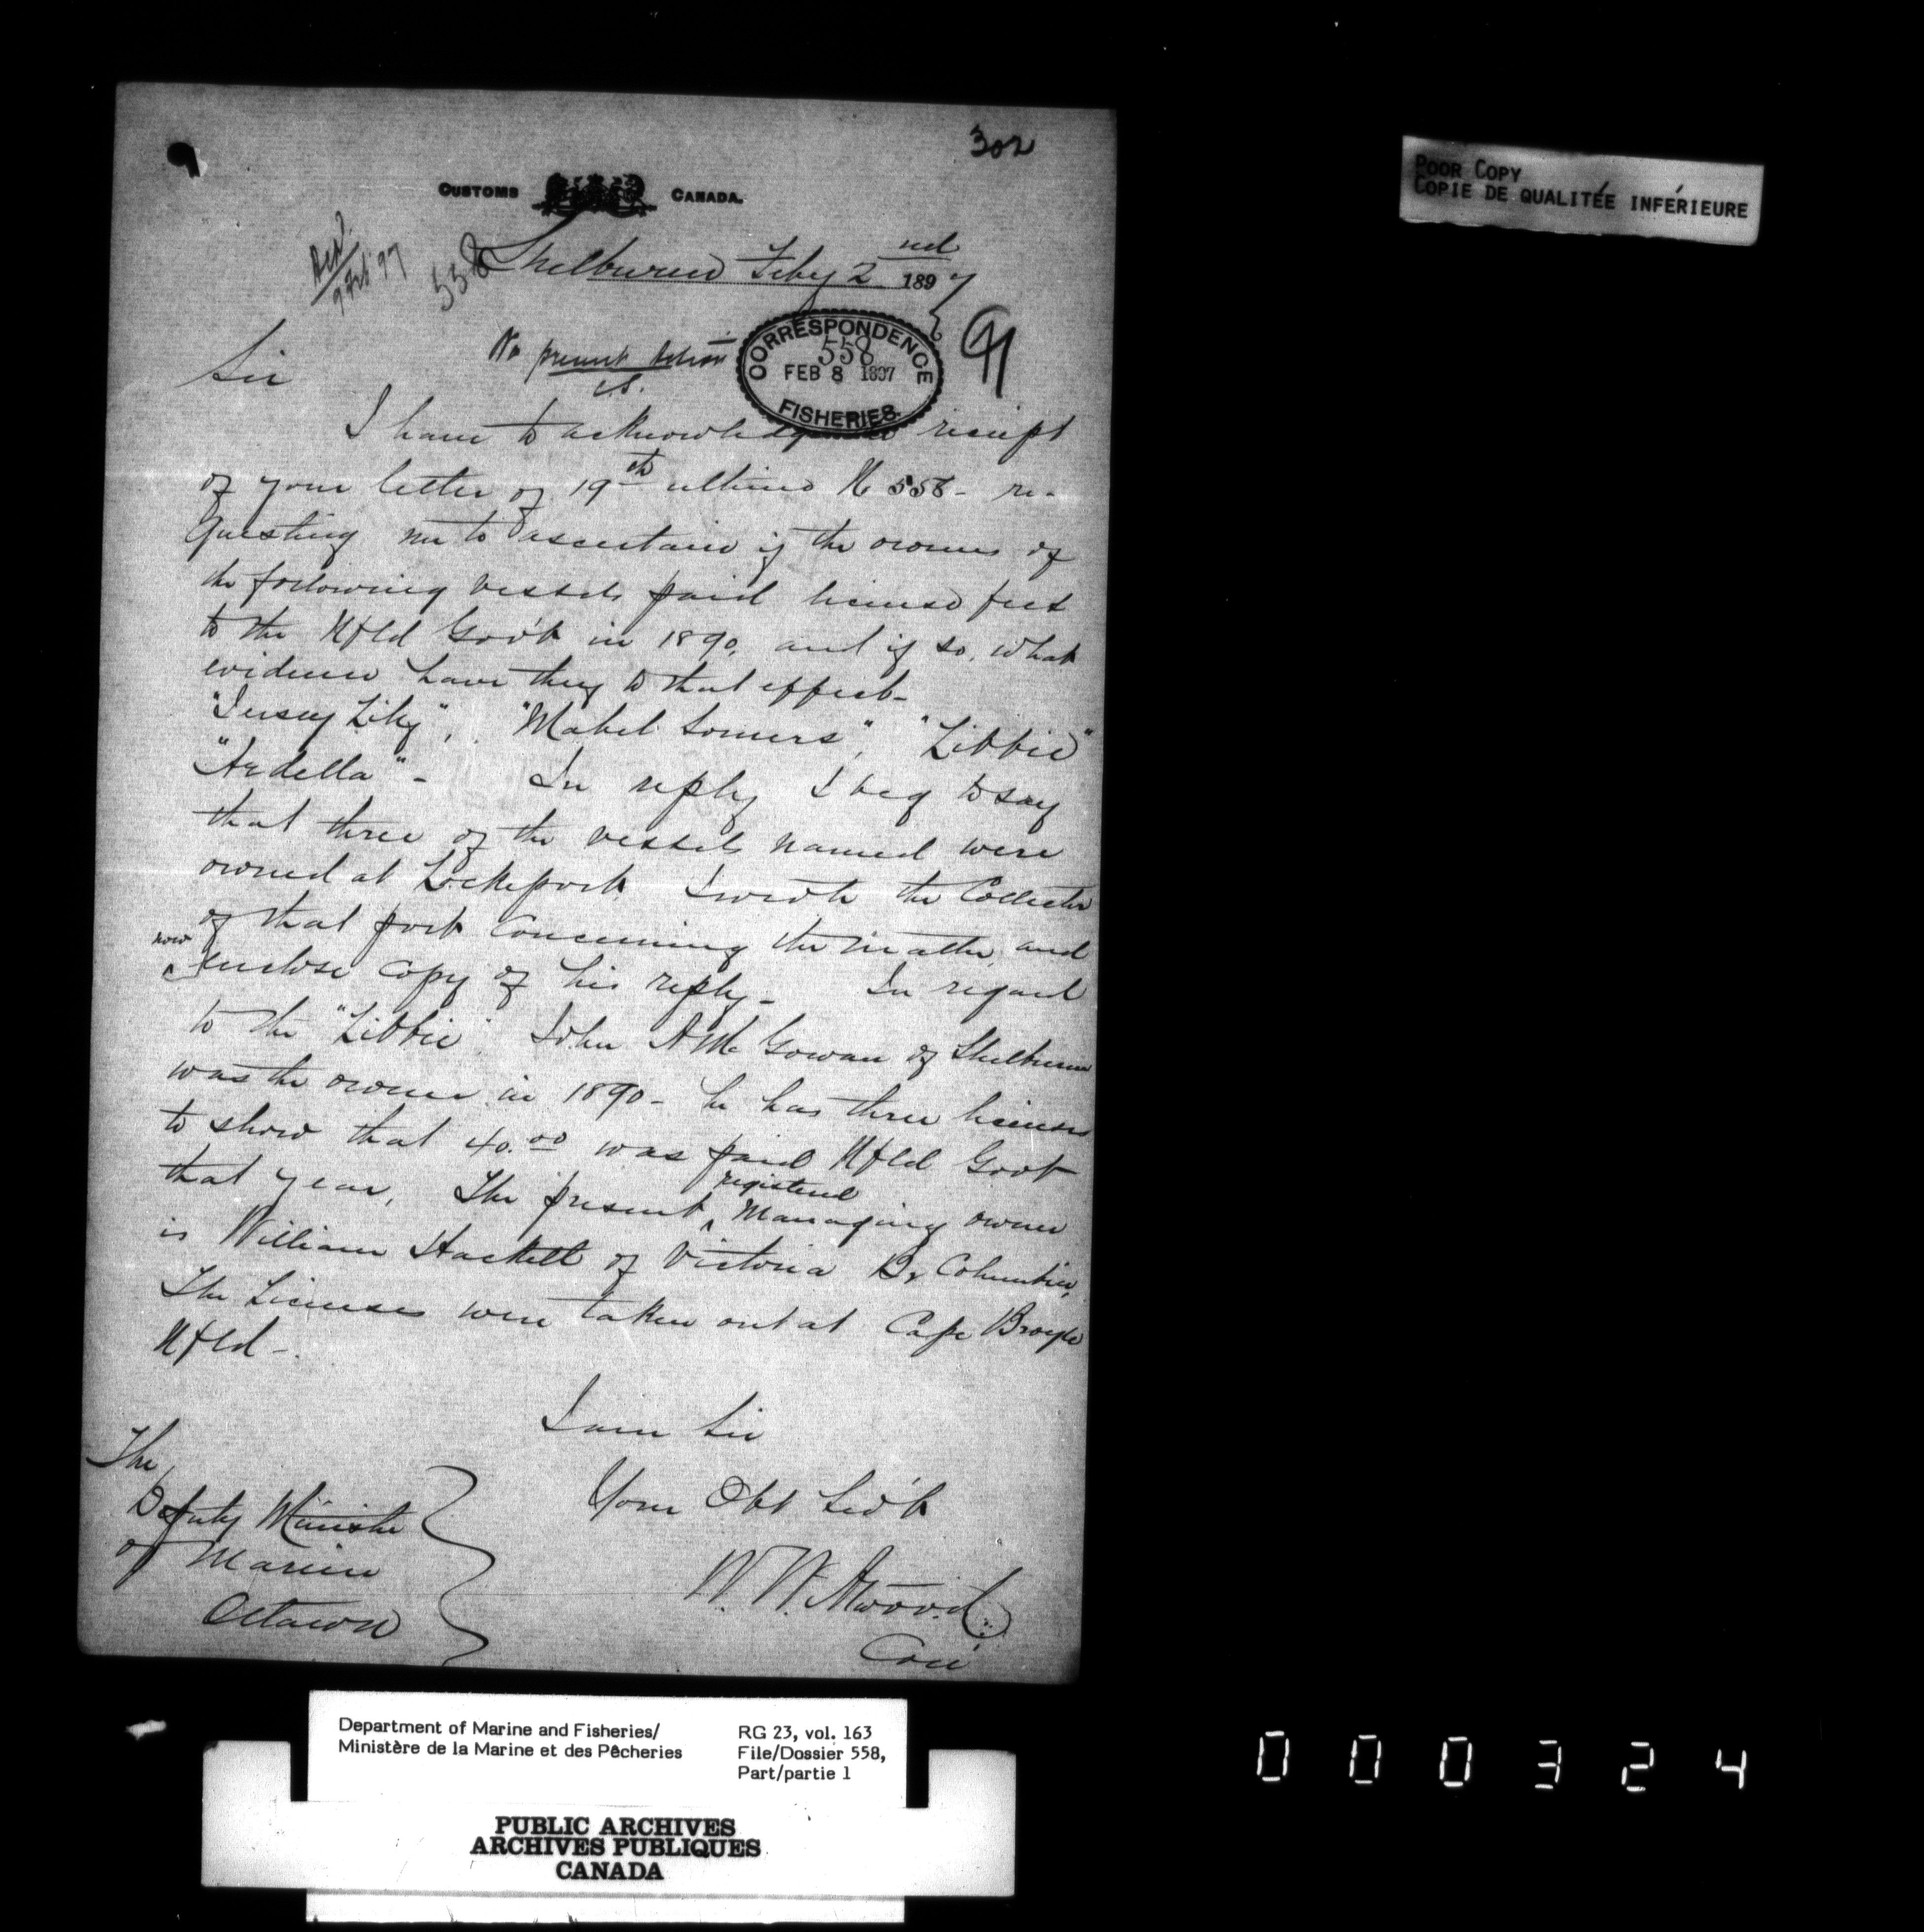 302
CUSTOMS CANADA.
9 Feb 97
558
Shelburne Feby 2nd 1897
91
No present action
CORRESPONDENCE
558
FEB 8 1897
FISHERIES
Sir
I have to acknowledge receipt
of your letter of 19th ultimo No 558 - re-
questing me to ascertain if the owners of
the following vessels paid license fees
to the Nfld Gov't in 1890, and if so, what
evidence have they to that effect -
"Jersey Lily", "Mabel Somers", "Libbie"
"Ardella" - In reply I beg to say
that three of the vessels named were
owned at Lockeport I wrote the Collector
of that port concerning the matter, and
now enclose copy of his reply - In regard
to the "Libbie" John A McGowan of Shelburne
was the owner in 1890 - he has three licenses
to show that 40.00 was paid Nfld Govt
that year. The present registered Managing owner
is William Hackett of Victoria Br Columbia,
The Licenses were taken out at Cape Broyle
Nfld -
I am Sir
Your Obt Serv't
W. W. Atwood
Coll
The
Deputy Minister
of Marine
Ottawa
POOR COPY
COPIE DE QUALITÉE INFÉRIEURE
Department of Marine and Fisheries/
Ministère de la Marine et des Pêcheries
RG 23, vol. 163
File/Dossier 558,
Part/partie 1
PUBLIC ARCHIVES
ARCHIVES PUBLIQUES
CANADA
000324